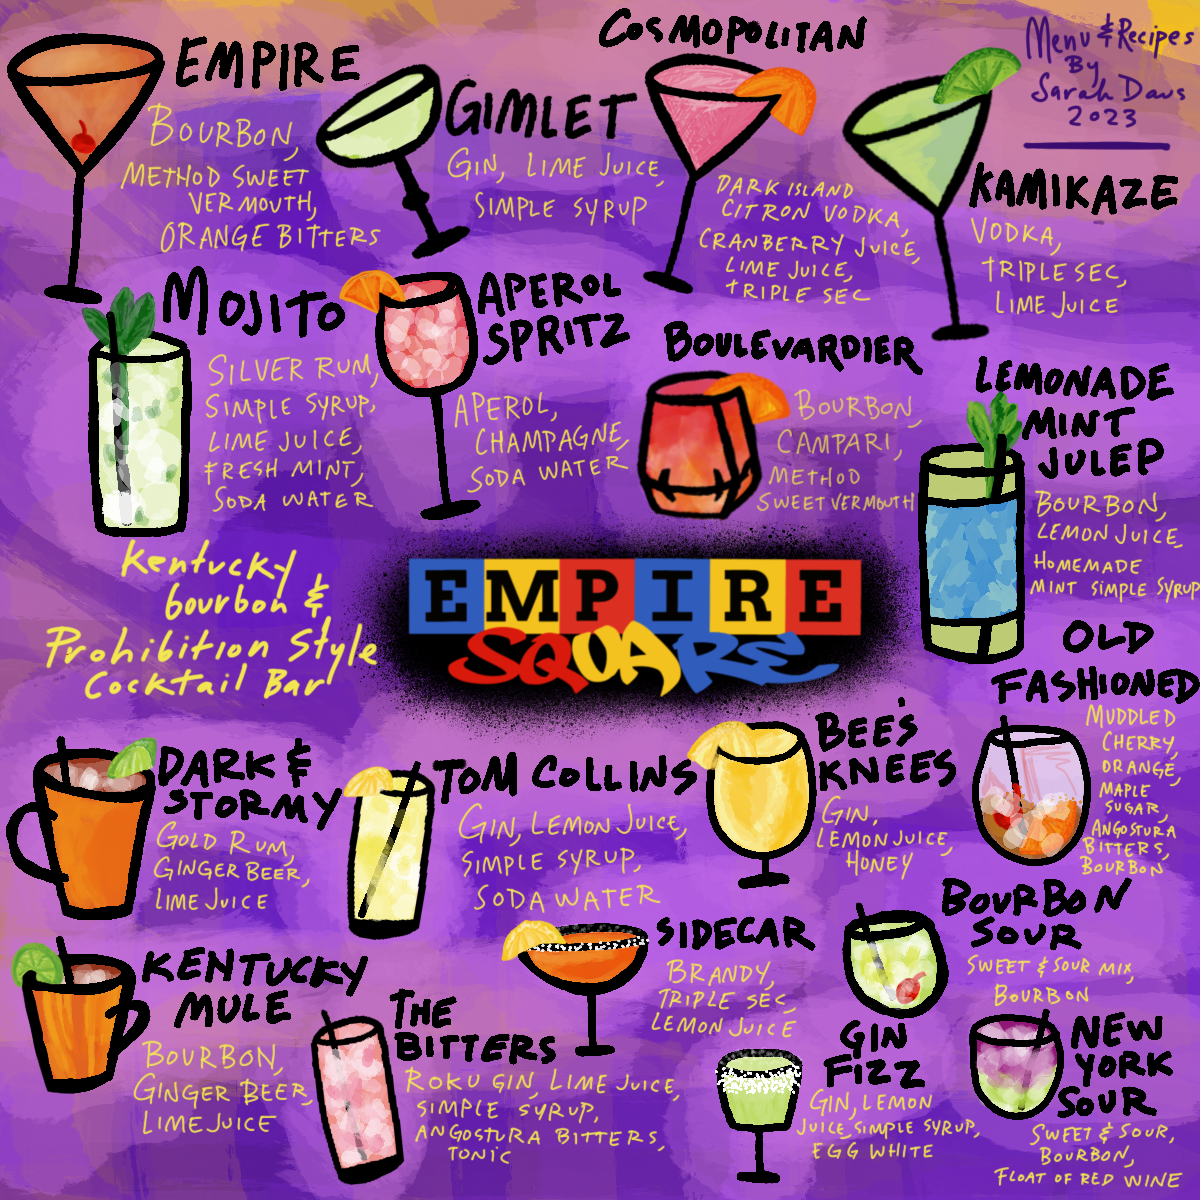 EMPIRE
BOURBON,
METHOD SWEET
VERMOUTH,
ORANGE BITTERS
GIMLET
GIN, LIME JUICE,
SIMPLE SYRUP
COSMOPOLITAN
DARK ISLAND
CITRON VODKA,
CRANBERRY JUICE,
LIME JUICE,
TRIPLE SEC
Menu & Recipes
By
Sarah Daws
2023
KAMIKAZE
VODKA,
TRIPLE SEC,
LIME JUICE
MOJITO
SILVER RUM,
SIMPLE SYRUP,
LIME JUICE,
FRESH MINT,
SODA WATER
APEROL
SPRITZ
APEROL,
CHAMPAGNE,
SODA WATER
BOULEVARDIER
BOURBON,
CAMPARI,
METHOD
SWEET VERMOUTH
LEMONADE
MINT
JULEP
BOURBON,
LEMON JUICE,
HOMEMADE
MINT SIMPLE SYRUP
Kentucky
bourbon &
Prohibition Style
Cocktail Bar
EMPIRE
SQUARE
OLD
FASHIONED
MUDDLED
CHERRY,
ORANGE,
MAPLE
SUGAR,
ANGOSTURA
BITTERS,
BOURBON
DARK &
STORMY
GOLD RUM,
GINGER BEER,
LIME JUICE
TOM COLLINS
GIN, LEMON JUICE,
SIMPLE SYRUP,
SODA WATER
BEE'S
KNEES
GIN,
LEMON JUICE,
HONEY
BOURBON
SOUR
SWEET & SOUR MIX,
BOURBON
KENTUCKY
MULE
BOURBON,
GINGER BEER,
LIME JUICE
THE
BITTERS
ROKU GIN, LIME JUICE,
SIMPLE SYRUP,
ANGOSTURA BITTERS,
TONIC
SIDECAR
BRANDY,
TRIPLE SEC,
LEMON JUICE
GIN
FIZZ
GIN, LEMON
JUICE, SIMPLE SYRUP,
EGG WHITE
NEW
YORK
SOUR
SWEET & SOUR,
BOURBON,
FLOAT OF RED WINE